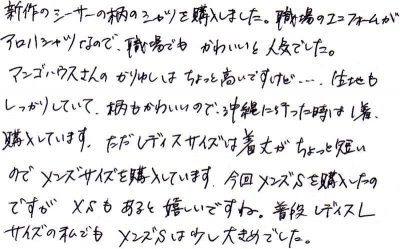 新作のシーサーの柄のシャツを購入しました。職場のユニフォームが
アロハシャツなので、職場でも かわいいと人気でした。
マンゴハウスさんの かりゆしは ちょっと高いですけど…、生地も
しっかりしていて、柄もかわいいので、沖縄に行った時は1着、
購入しています。ただレディスサイズは着丈がちょっと短い
のでメンズサイズを購入しています。今回メンズSを購入したの
ですが XSもあると嬉しいですね。普段レディスL
サイズの私でも メンズSは少し大きめでした。